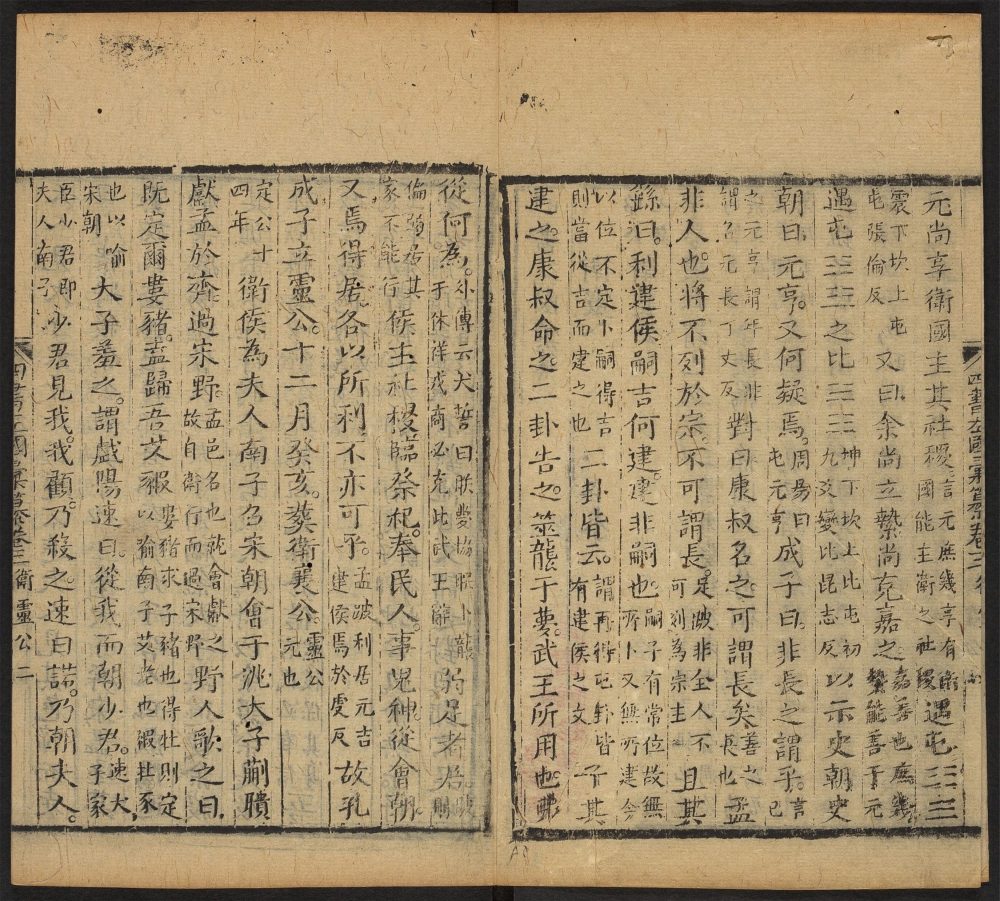 元尚享衛國主其社稷言元庶幾享有衛國能主衛之社稷遇屯☵☳
震下坎上屯屯張倫反又曰余尚立縶尚克嘉之嘉善也庶幾縶能善于元
遇屯☵☳之比☵☷坤下坎上比屯初九爻變比毘志反以示史朝史
朝曰元亨又何疑焉周易曰屯元亨成子曰非長之謂乎言己
之元亨謂年長非謂名元長丁丈反對曰康叔名之可謂長矣善之長也孟
非人也將不列於宗不可謂長足跛非全人不可列為宗主且其
繇曰利建侯嗣吉何建建非嗣也嗣子有常位故無所卜又無所建今
以位不定卜嗣得吉則當從吉而建之也二卦皆云謂再得屯卦皆有建侯之文子其
建之康叔命之二卦告之筮襲于夢武王所用也弗
四書左國彙纂卷三
從何為外傳云大誓曰朕夢協朕卜襲于休祥戎商必克此武王辭弱足者居跛則
偏弱居其家不能行侯主社稷臨祭祀奉民人事鬼神從會朝
又焉得居各以所利不亦可乎孟跛利居元吉建侯焉於虔反故孔
成子立靈公十二月癸亥葬衛襄公靈公元也
定公十四年衛侯為夫人南子召宋朝會于洮大子蒯聵
獻盂於齊過宋野盂邑名也就會獻之故自衛行而過宋野野人歌之曰
既定爾婁豬盍歸吾艾豭婁豬求子豬也得牡則定以喻南子艾老也豭牡豕
也以喻宋朝大子羞之謂戲陽速曰從我而朝少君速大子家
臣少君即夫人南子少君見我我顧乃殺之速曰諾乃朝夫人
四書左國彙纂卷三 衛靈公 二